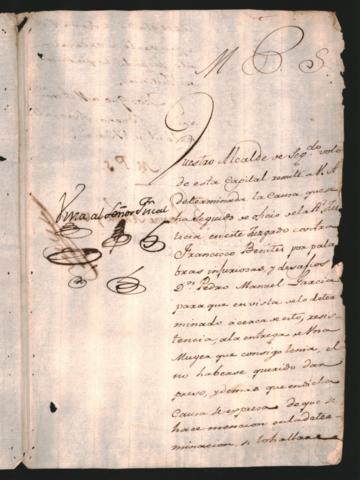 M P S.
Vuestro Alcalde de Seg.do voto
de esta Capital remite a V. A.
determinada la Causa que se
ha seguido de oficio de la R.l Jus
ticia en este Juzgado contra
Francisco Benites por pala
bras injuriosas, y desafios
D.n Pedro Manuel Garcia
para que en vista de lo deter
minado acerca de esto, resis
tencia, a la entrega de una
Muger que consigo tenia, el
no haberse querido dar
preso, y demas que en dicha
Causa se expresa de que se
hace mencion en la deter
minacion, si lo hallare
Vista al Señor Fiscal